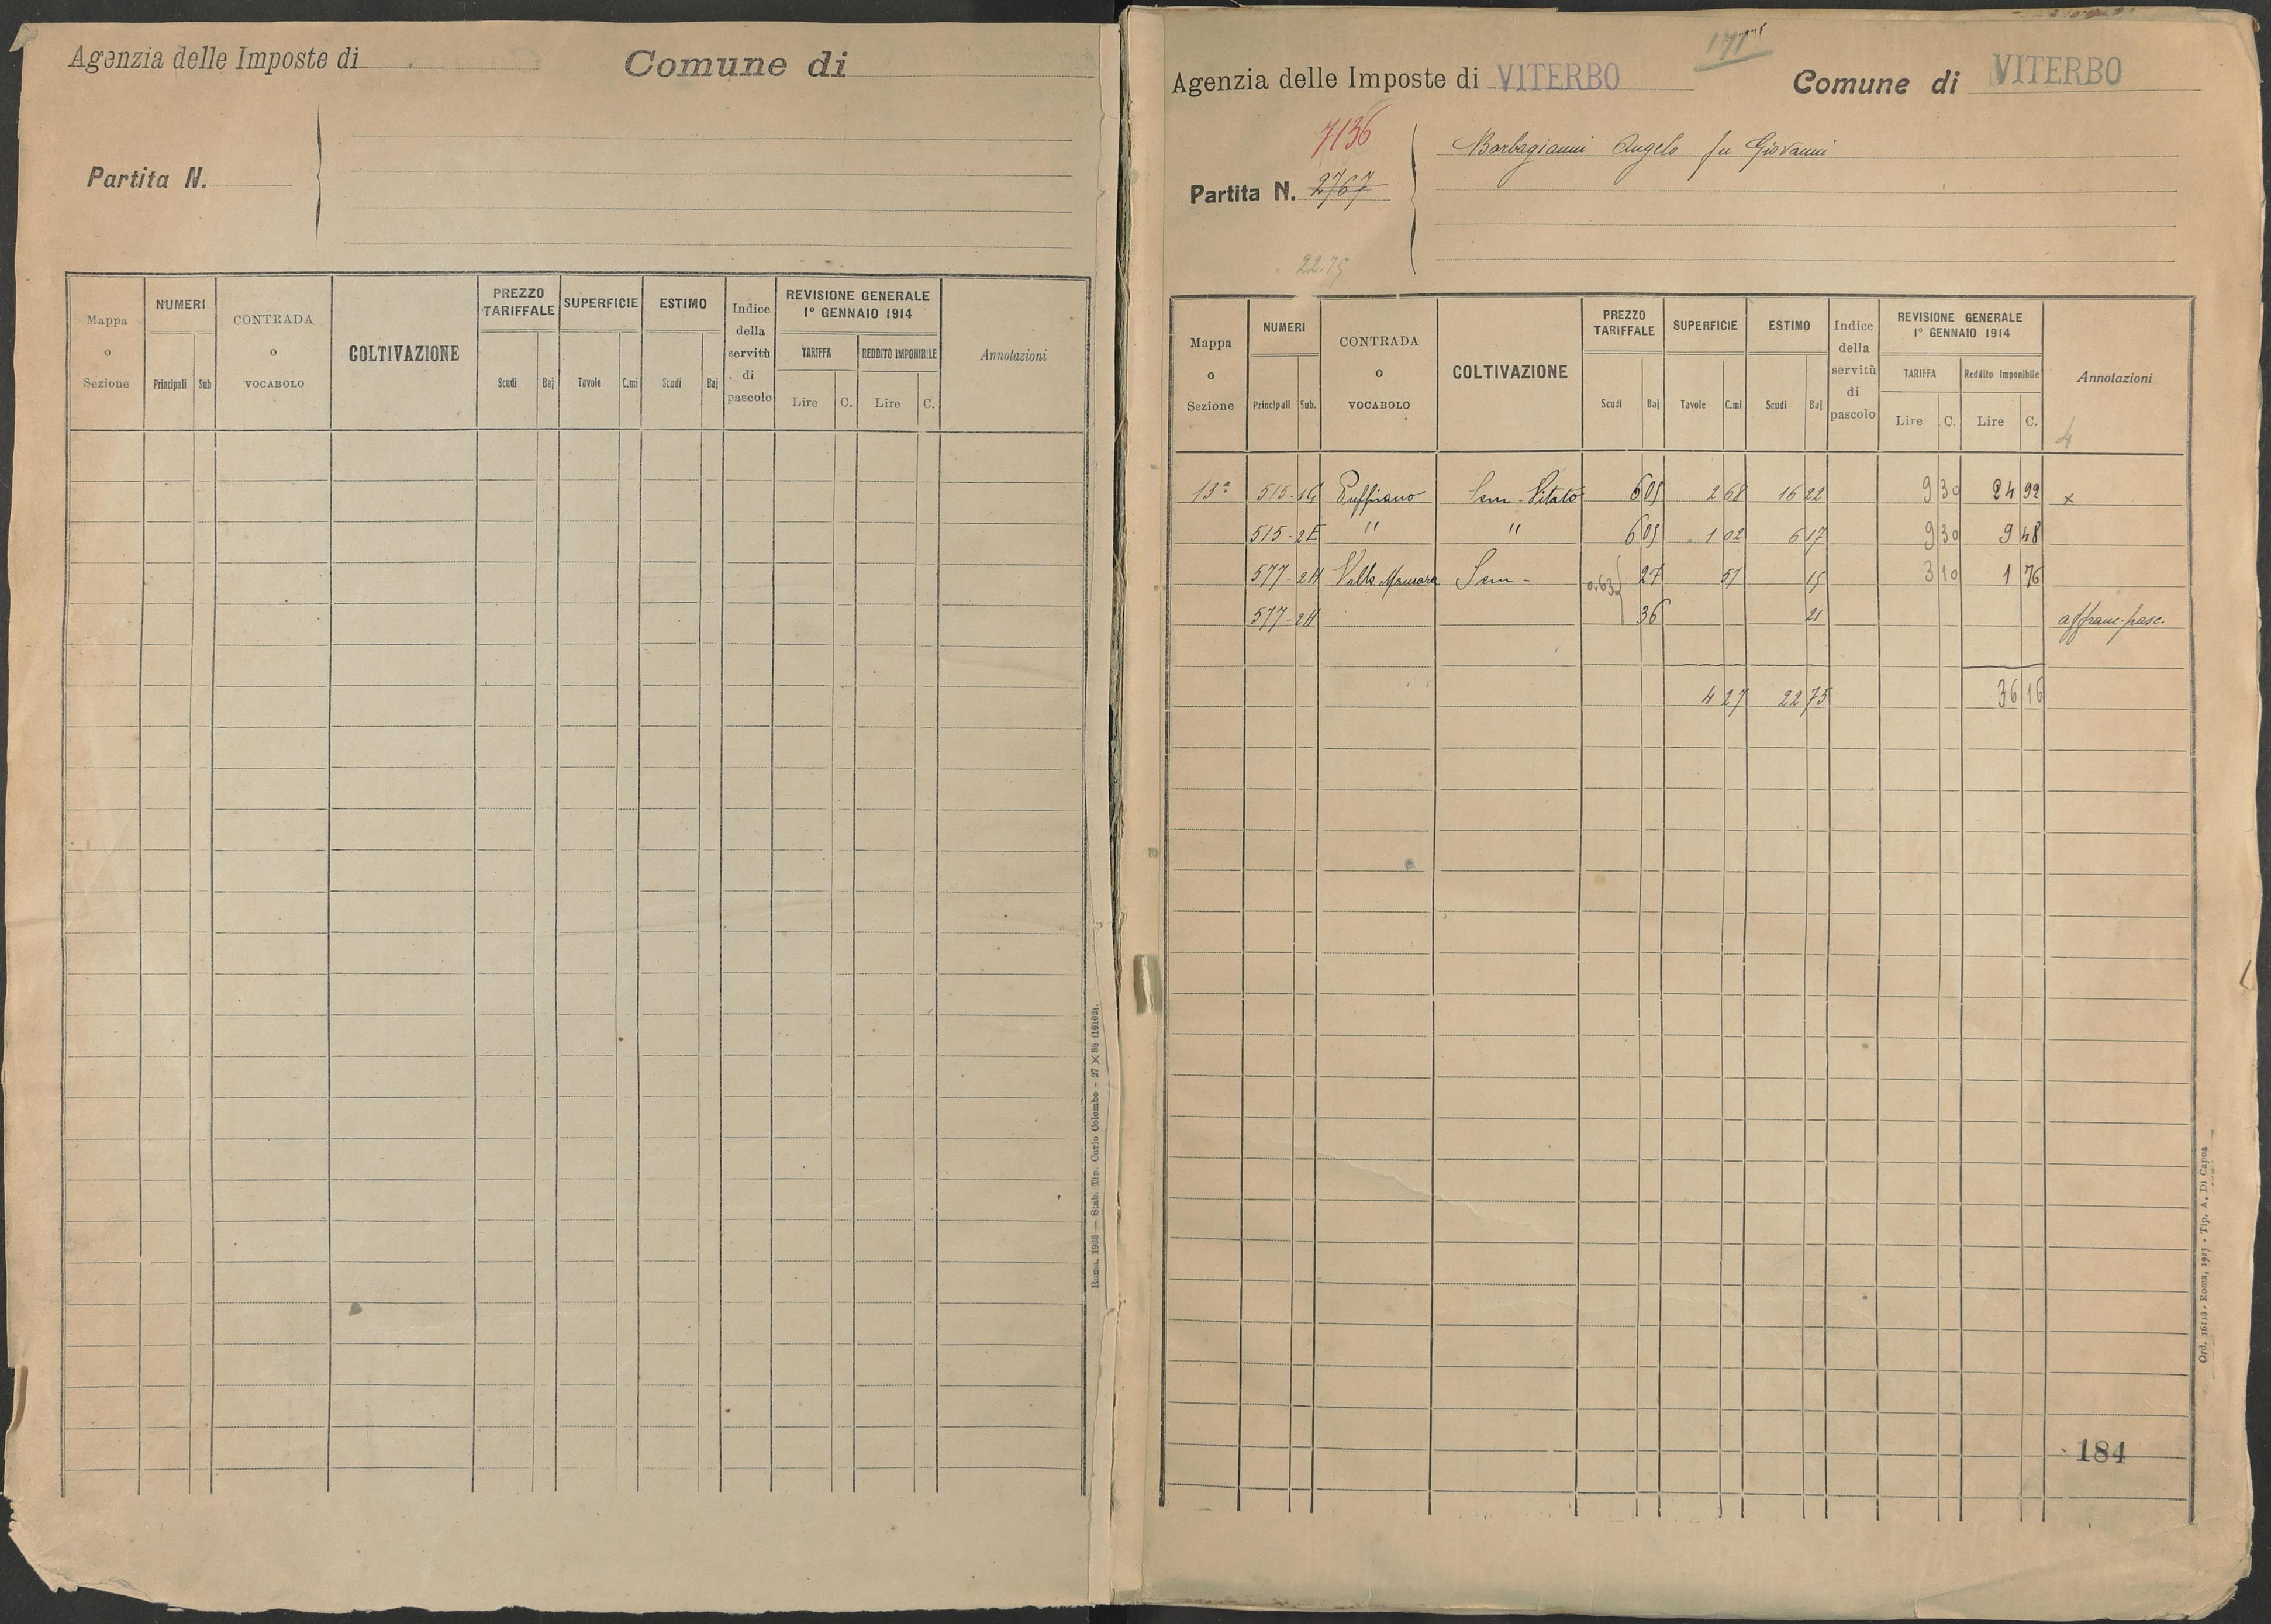 Agenzia delle Imposte di
Comune di
Partita N.
Mappa o Sezione
NUMERI
Principali Sub
CONTRADA o VOCABOLO
COLTIVAZIONE
PREZZO TARIFFALE
Scudi Baj
SUPERFICIE
Tavole C.mi
ESTIMO
Scudi Baj
Indice della servitù di pascolo
REVISIONE GENERALE
1° GENNAIO 1914
TARIFFA
Lire C.
REDDITO IMPONIBILE
Lire C.
Annotazioni
Roma, 1928 — Stab. Tip. Carlo Colombo - 27 X 38 (16163).
Agenzia delle Imposte di VITERBO
Comune di VITERBO
7136
Partita N. 2767
Barbagianni Angelo fu Giovanni
22.75
Mappa o Sezione
NUMERI
Principali Sub.
CONTRADA o VOCABOLO
COLTIVAZIONE
PREZZO TARIFFALE
Scudi Baj
SUPERFICIE
Tavole C.mi
ESTIMO
Scudi Baj
Indice della servitù di pascolo
REVISIONE GENERALE
1° GENNAIO 1914
TARIFFA
Lire C.
Reddito Imponibile
Lire C.
Annotazioni
4
13ª 515-1G Ruffiano Sem-Vitato 6 05 2 68 16 22 9 30 24 92 x
515-2E " " 6 05 1 02 6 17 9 30 9 48
577-2H Valle Sem- 0.63 27 57 15 3 10 1 76
577-2H 36 21 affranc. pasc.
4 27 22 75 36 16
184
Ord. 16113 - Roma, 1925 - Tip. A. Di Capua